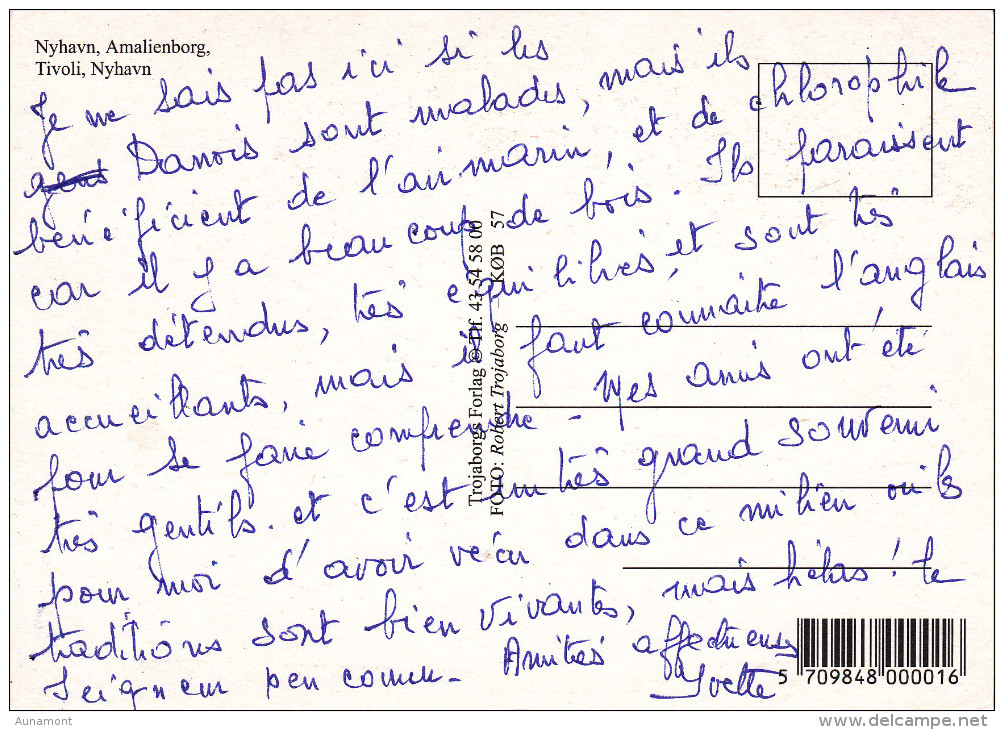 Nyhavn, Amalienborg,
Tivoli, Nyhavn
Je ne sais pas ici si les
gens Danois sont malades, mais ils
bénéficient de l'air marin, et de chlorophile
car il y a beaucoup de bois. Ils paraissent
très détendus, très équilibrés, et sont très
accueillants, mais il faut connaître l'anglais
pour se faire comprendre - Mes amis ont été
très gentils. et c'est un très grand souvenir
pour moi d'avoir vécu dans ce milieu où les
traditions sont bien vivantes, mais hélas ! le
Seigneur peu connu - Amitiés affectueuses
Yvette
Trojaborgs Forlag © Tlf. 43 54 58 00
FOTO: Robert Trojaborg — KØB 57
5 709848 000016
Aunamont
www.delcampe.net